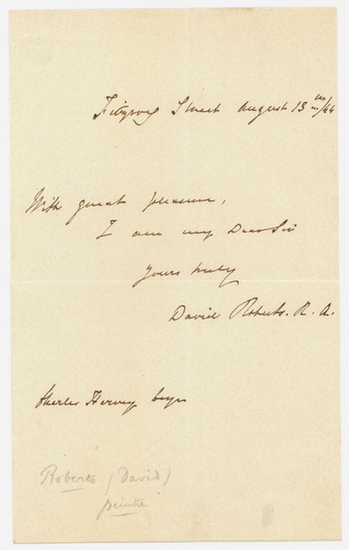 Fitzroy Street August 13th /64
With great pleasure,
I am my Dear Sir
Yours truly
David Roberts. R. A.
Charles Hervey Esqr
Roberts (David)
peintre